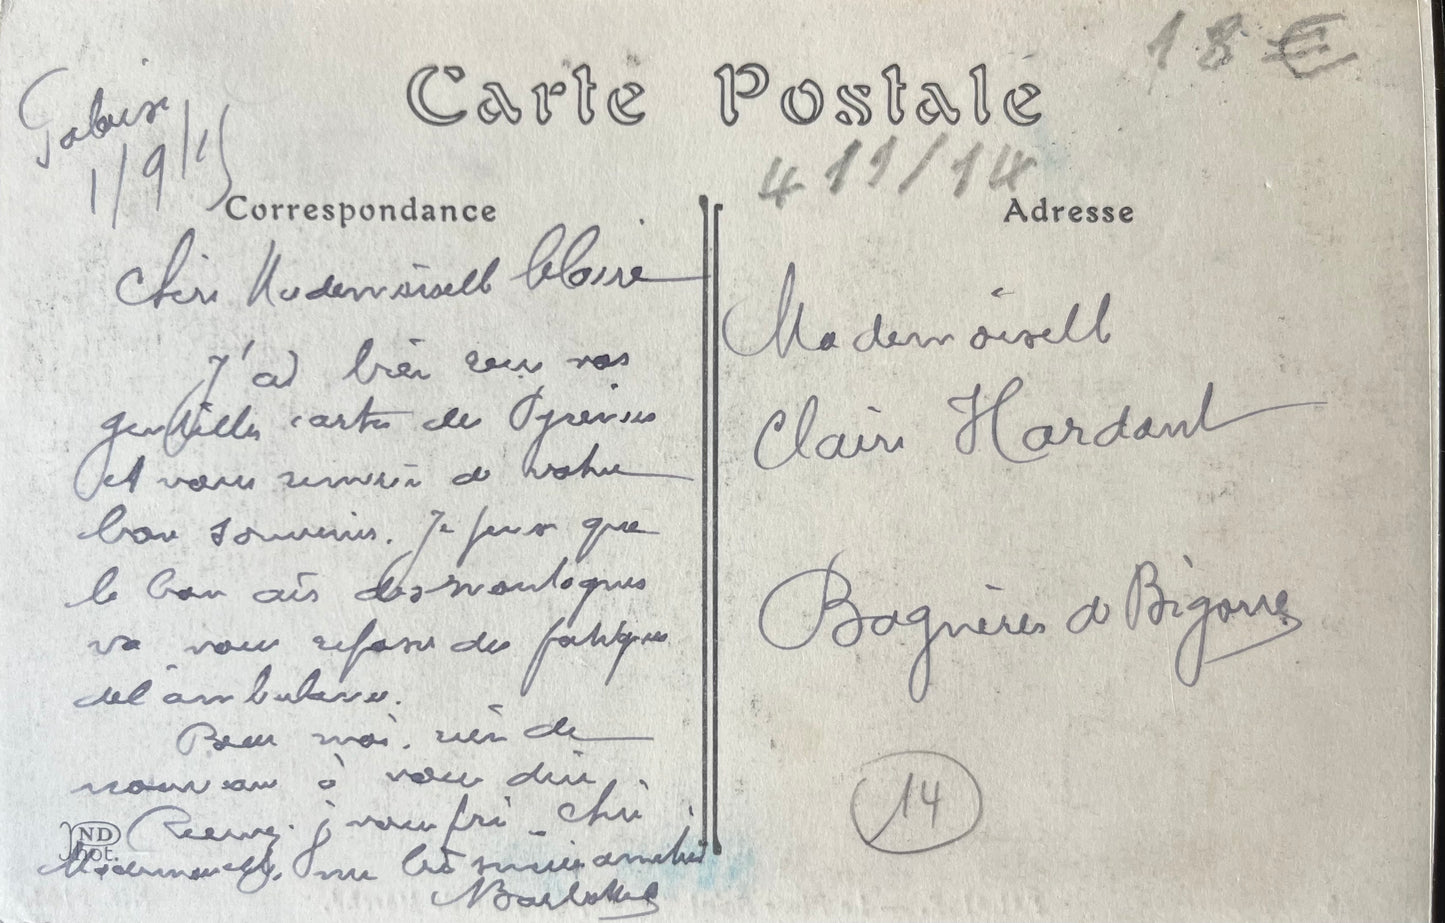 18 €
Carte Postale
Falaise
1/9/15
411/14
Correspondance
Adresse
Chère Mademoiselle Claire
J'ai bien reçu vos
gentilles cartes des Pyrénées
et vous remercie de votre
bon souvenir. Je pense que
le bon air des montagnes
va vous reposer des fatigues
de l'ambulance.
Pour moi, rien de
nouveau à vous dire.
Recevez, je vous prie, chère
Mademoiselle, mes très amitiés
ND
Phot.
Mademoiselle
Claire Hardant
Bagnères de Bigorre
14